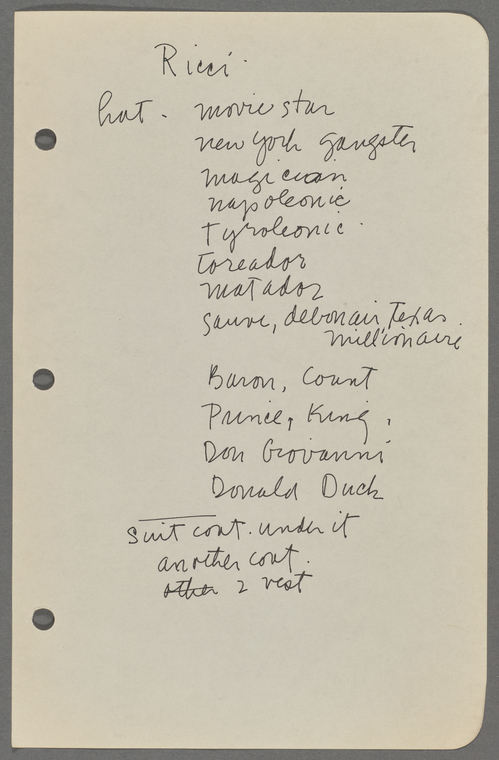 Ricci.
hat. movie star
new york gangster
magician
napoleonic
Tyroleonic.
toreador
matador
sauve, debonair, Texas
millionaire
Baron, Count
Prince, King,
Don Giovanni
Donald Duck
suit coat. under it
another coat.
other 2 vest